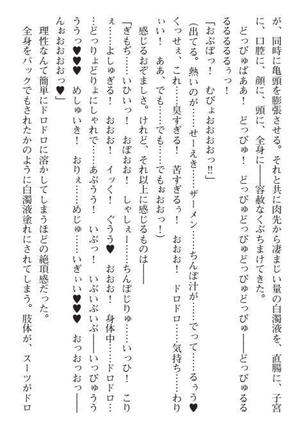 が、同時に亀頭を膨張させる。それと共に肉先から凄まじい量の白濁液を、直腸に、子宮
に、口腔に、顔に、頭に、全身に――容赦なくぶちまけてきた。
どっぴゅばぁあ！　どっぴゅ！　どっびゅ！　どっぴゅどっぴゅどっぴゅどっびゅるる
るるるるるぅっ！
「おぶぼっ！　むびょおおおおっ!!」
（出てる。熱いのが……せーえき……ザーメン……ちんぽ汁が……でって……るぅう♥
くっせぇ、これ……臭すぎる！　苦すぎるぅ！　おおお！　ドロドロ……気持ち……わり
ぃい！　あぞ……でも……でも……でもぉおっ！）
感じるおぞましさ。けれど、それ以上に感じるものは――
「ぎもぢ……いひいっ！　おぼおお！　しゃしぇー……ちんぽじりゅ……いっひ！　こり
ぇ……よしゅぎる！　おおお！　イッく！　ぐうう♥　おおお！　身体中……ドロドロ……
ううっ♥♥　めしゅいき！　おりぇ……めじゅ……いぎぃい♥♥♥　おっおおおっ――
……どっりょどりょにしゃれで……あぶうう！　いぶっ！　いぶいぶいぶ――いっびゅうう
んぉおおおおっ♥」
理性なんて簡単にドロドロに溶かしてしまうほどの絶頂感だった。
全身をパックでもされたかのように白濁液塗れにされてしまう。肢体が、スーツがドロ